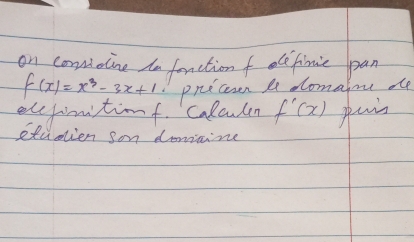 on considère la fonction f définie par
f(x) = x³ - 3x + 1. préciser le domaine de
definition f. Calculer f'(x) puis
étudier son domaine